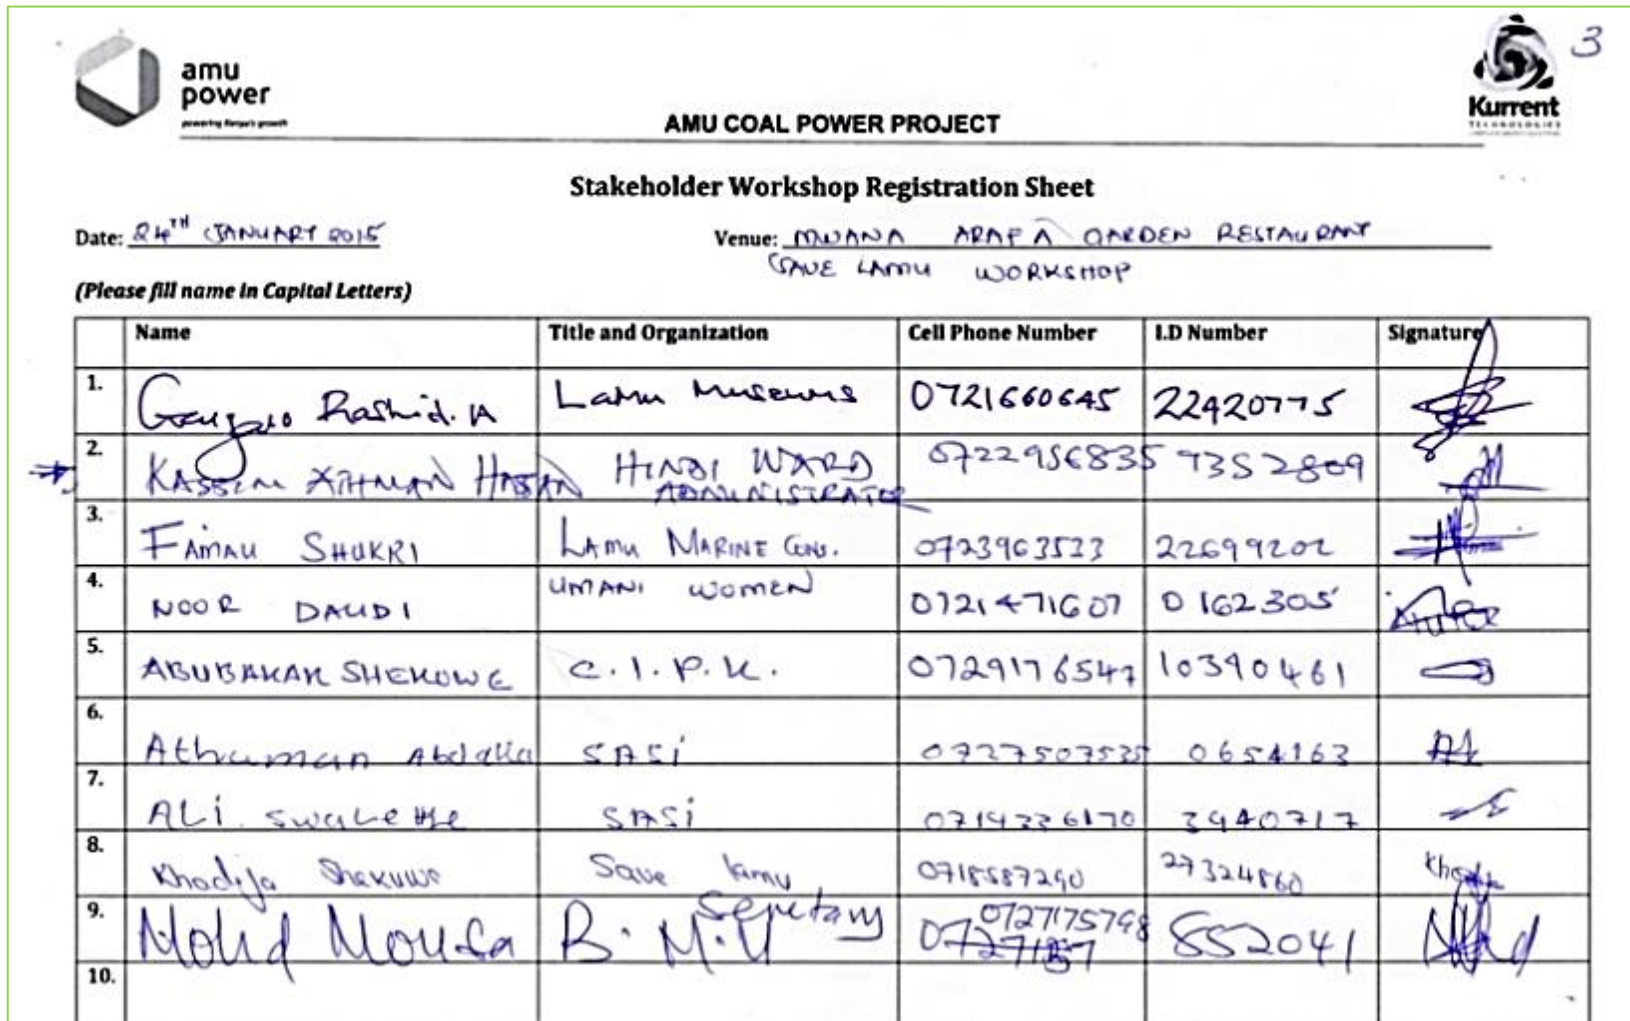 3
amu
power
powering Kenya's growth
Kurrent
TECHNOLOGIES
AMU COAL POWER PROJECT
Stakeholder Workshop Registration Sheet
Date: 24TH JANUARY 2015 Venue: MWANA ARAFA GARDEN RESTAURANT
SAVE LAMU WORKSHOP
(Please fill name in Capital Letters)
Name Title and Organization Cell Phone Number I.D Number Signature
1. Rashid. A Lamu Museums 0721660645 22420775
2. KASSIM ATHMAN HASSAN HINDI WARD ADMINISTRATOR 0722956835 9352809
3. FAMAU SHUKRI LAMU MARINE CONS. 0723963533 22699202
4. NOOR DAUDI UMANI WOMEN 0721471607 0162305
5. ABUBAKAR SHEKUWE C.I.P.K. 0729176547 10390461
6. Athuman Abdalla SASI 0727507535 0654163
7. ALi SASi 0714336170 3940717
8. Khadija Shekuwe Save lamu 0718587290 27324860
9. Mohd Mousa B.M.U Secretary 0727175798 852041
10.